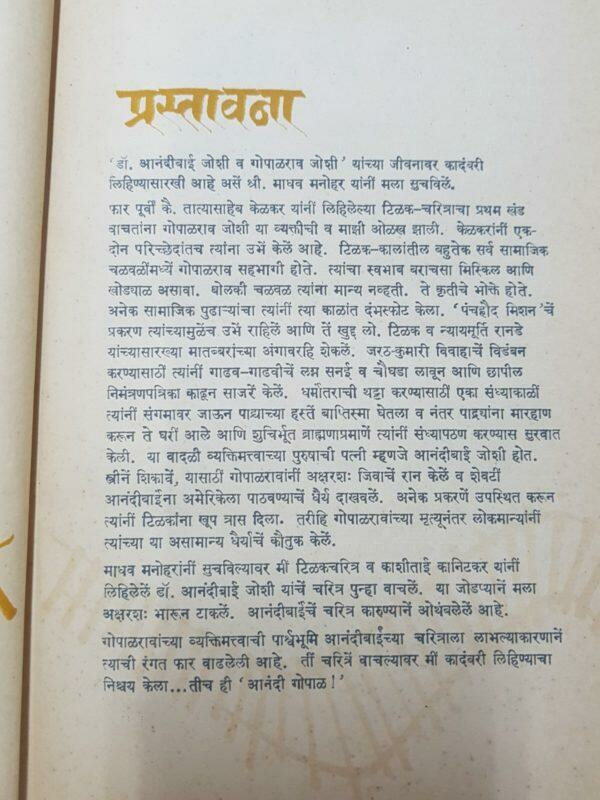 प्रस्तावना
'डॉ. आनंदीबाई जोशी व गोपाळराव जोशी' यांच्या जीवनावर कादंबरी
लिहिण्यासारखी आहे असें श्री. माधव मनोहर यांनीं मला सुचविलें.
फार पूर्वीं कै. तात्यासाहेब केळकर यांनीं लिहिलेल्या टिळक-चरित्राचा प्रथम खंड
वाचतांना गोपाळराव जोशी या व्यक्तीची व माझी ओळख झाली. केळकरांनीं एक-
दोन परिच्छेदांतच त्यांना उभें केलें आहे. टिळक-कालांतील बहुतेक सर्व सामाजिक
चळवळींमध्यें गोपाळराव सहभागी होते. त्यांचा स्वभाव बराचसा मिस्किल आणि
खोड्याळ असावा. बोलकी चळवळ त्यांना मान्य नव्हती. ते कृतीचे भोक्ते होते.
अनेक सामाजिक पुढाऱ्यांचा त्यांनीं त्या काळांत दंभस्फोट केला. 'पंचहौद मिशन'चें
प्रकरण त्यांच्यामुळेंच उभें राहिलें आणि तें खुद्द लो. टिळक व न्यायमूर्ति रानडे
यांच्यासारख्या मातब्बरांच्या अंगावरहि शेकलें. जरठ-कुमारी विवाहाचें विडंबन
करण्यासाठीं त्यांनीं गाढव-गाढवीचें लग्न सनई व चौघडा लावून आणि छापील
निमंत्रणपत्रिका काढून साजरें केलें. धर्मांतराची थट्टा करण्यासाठीं एका संध्याकाळीं
त्यांनीं संगमावर जाऊन पाद्य्राच्या हस्तें बाप्तिस्मा घेतला व नंतर पाद्र्यांना मारहाण
करून ते घरीं आले आणि शुचिर्भूत ब्राह्मणाप्रमाणें त्यांनीं संध्यापठण करण्यास सुरवात
केली. या वादळी व्यक्तिमत्त्वाच्या पुरुषाची पत्नी म्हणजे आनंदीबाई जोशी होत.
स्त्रीनें शिकावें, यासाठीं गोपाळरावांनीं अक्षरशः जिवाचें रान केलें व शेवटीं
आनंदीबाईंना अमेरिकेला पाठवण्याचें धैर्य दाखवलें. अनेक प्रकरणें उपस्थित करून
त्यांनीं टिळकांना खूप त्रास दिला. तरीहि गोपाळरावांच्या मृत्यूनंतर लोकमान्यांनीं
त्यांच्या या असामान्य धैर्याचें कौतुक केलें.
माधव मनोहरांनीं सुचविल्यावर मीं टिळकचरित्र व काशीताई कानिटकर यांनीं
लिहिलेलें डॉ. आनंदीबाई जोशी यांचें चरित्र पुन्हा वाचलें. या जोडप्यानें मला
अक्षरशः भारून टाकलें. आनंदीबाईंचें चरित्र कारुण्यानें ओथंबलेलें आहे.
गोपाळरावांच्या व्यक्तिमत्त्वाची पार्श्वभूमि आनंदीबाईंच्या चरित्राला लाभल्याकारणानें
त्याची रंगत फार वाढलेली आहे. तीं चरित्रें वाचल्यावर मीं कादंबरी लिहिण्याचा
निश्चय केला...तीच ही 'आनंदी गोपाळ!'